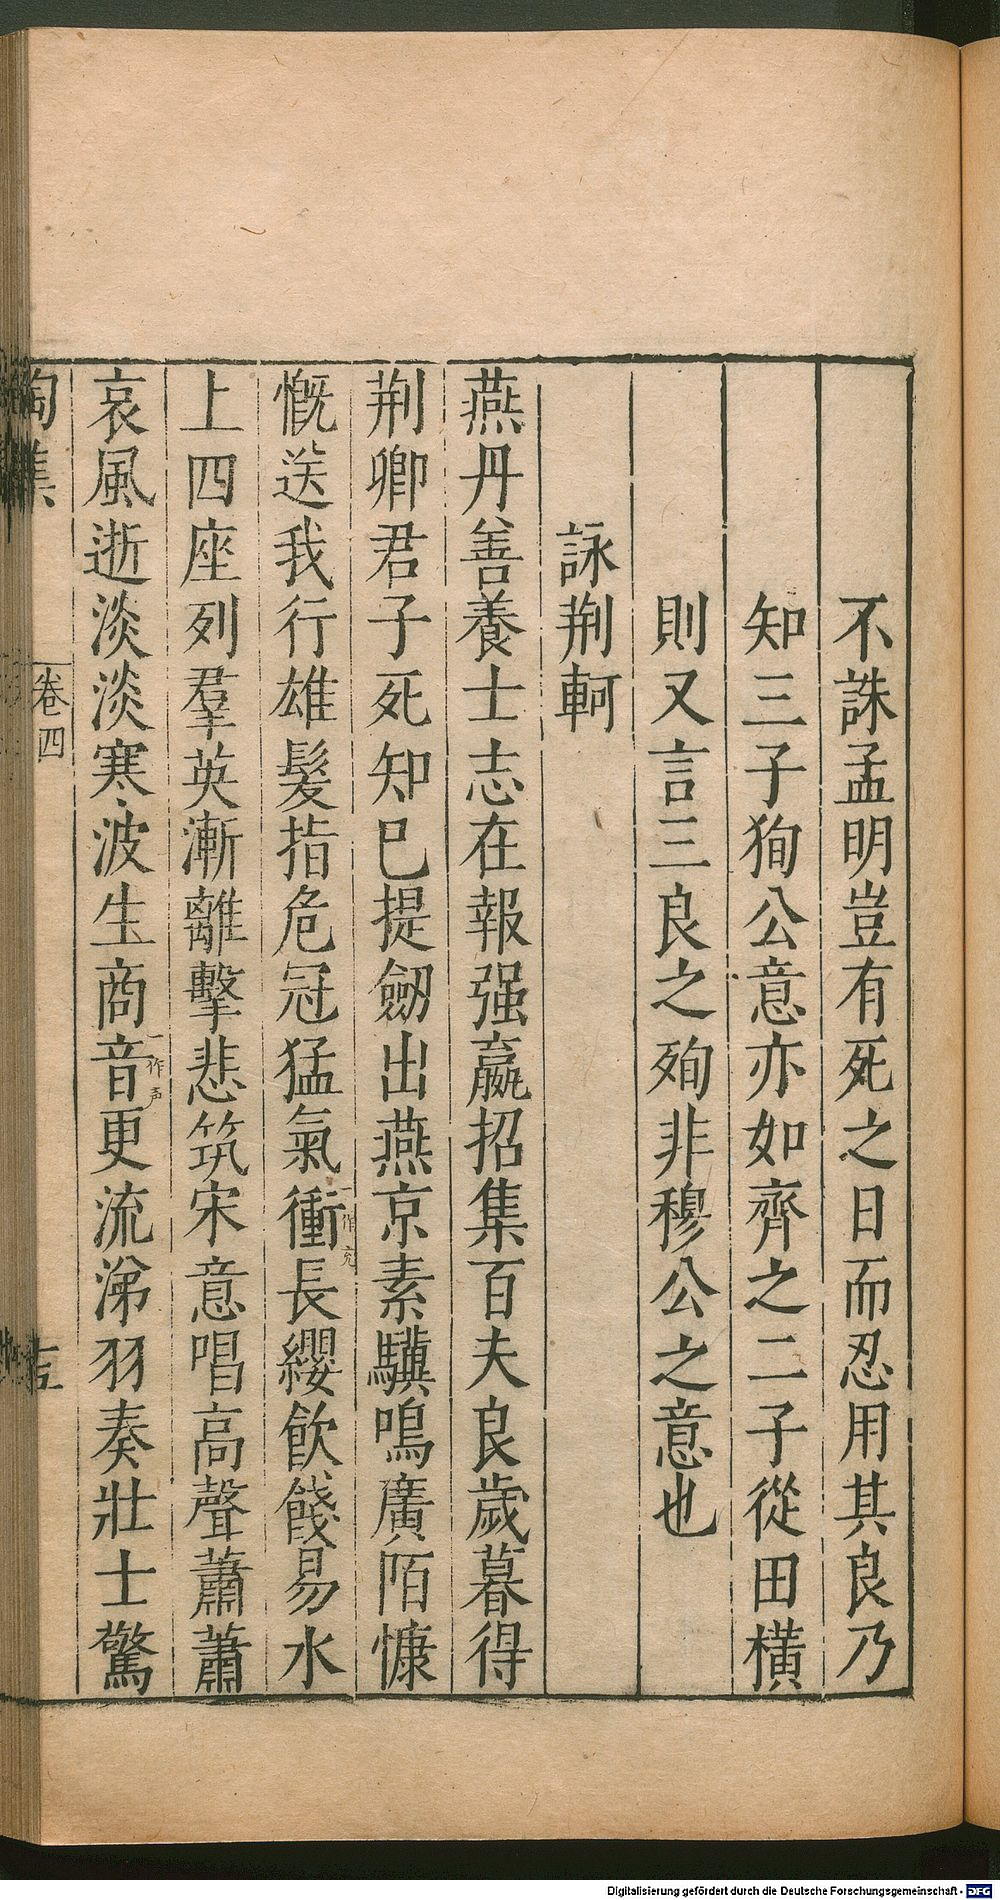 不誅孟明豈有死之日而忍用其良乃
知三子狥公意亦如齊之二子從田橫
則又言三良之殉非穆公之意也
詠荆軻
燕丹善養士志在報强嬴招集百夫良歲暮得
荆卿君子死知巳提劒出燕京素驥鳴廣陌慷
慨送我行雄髮指危冠猛氣衝一作充長纓飲餞易水
上四座列羣英漸離擊悲筑宋意唱高聲蕭蕭
哀風逝淡淡寒波生商音一作声更流涕羽奏壯士驚
陶集 卷四
Digitalisierung gefördert durch die Deutsche Forschungsgemeinschaft - DFG